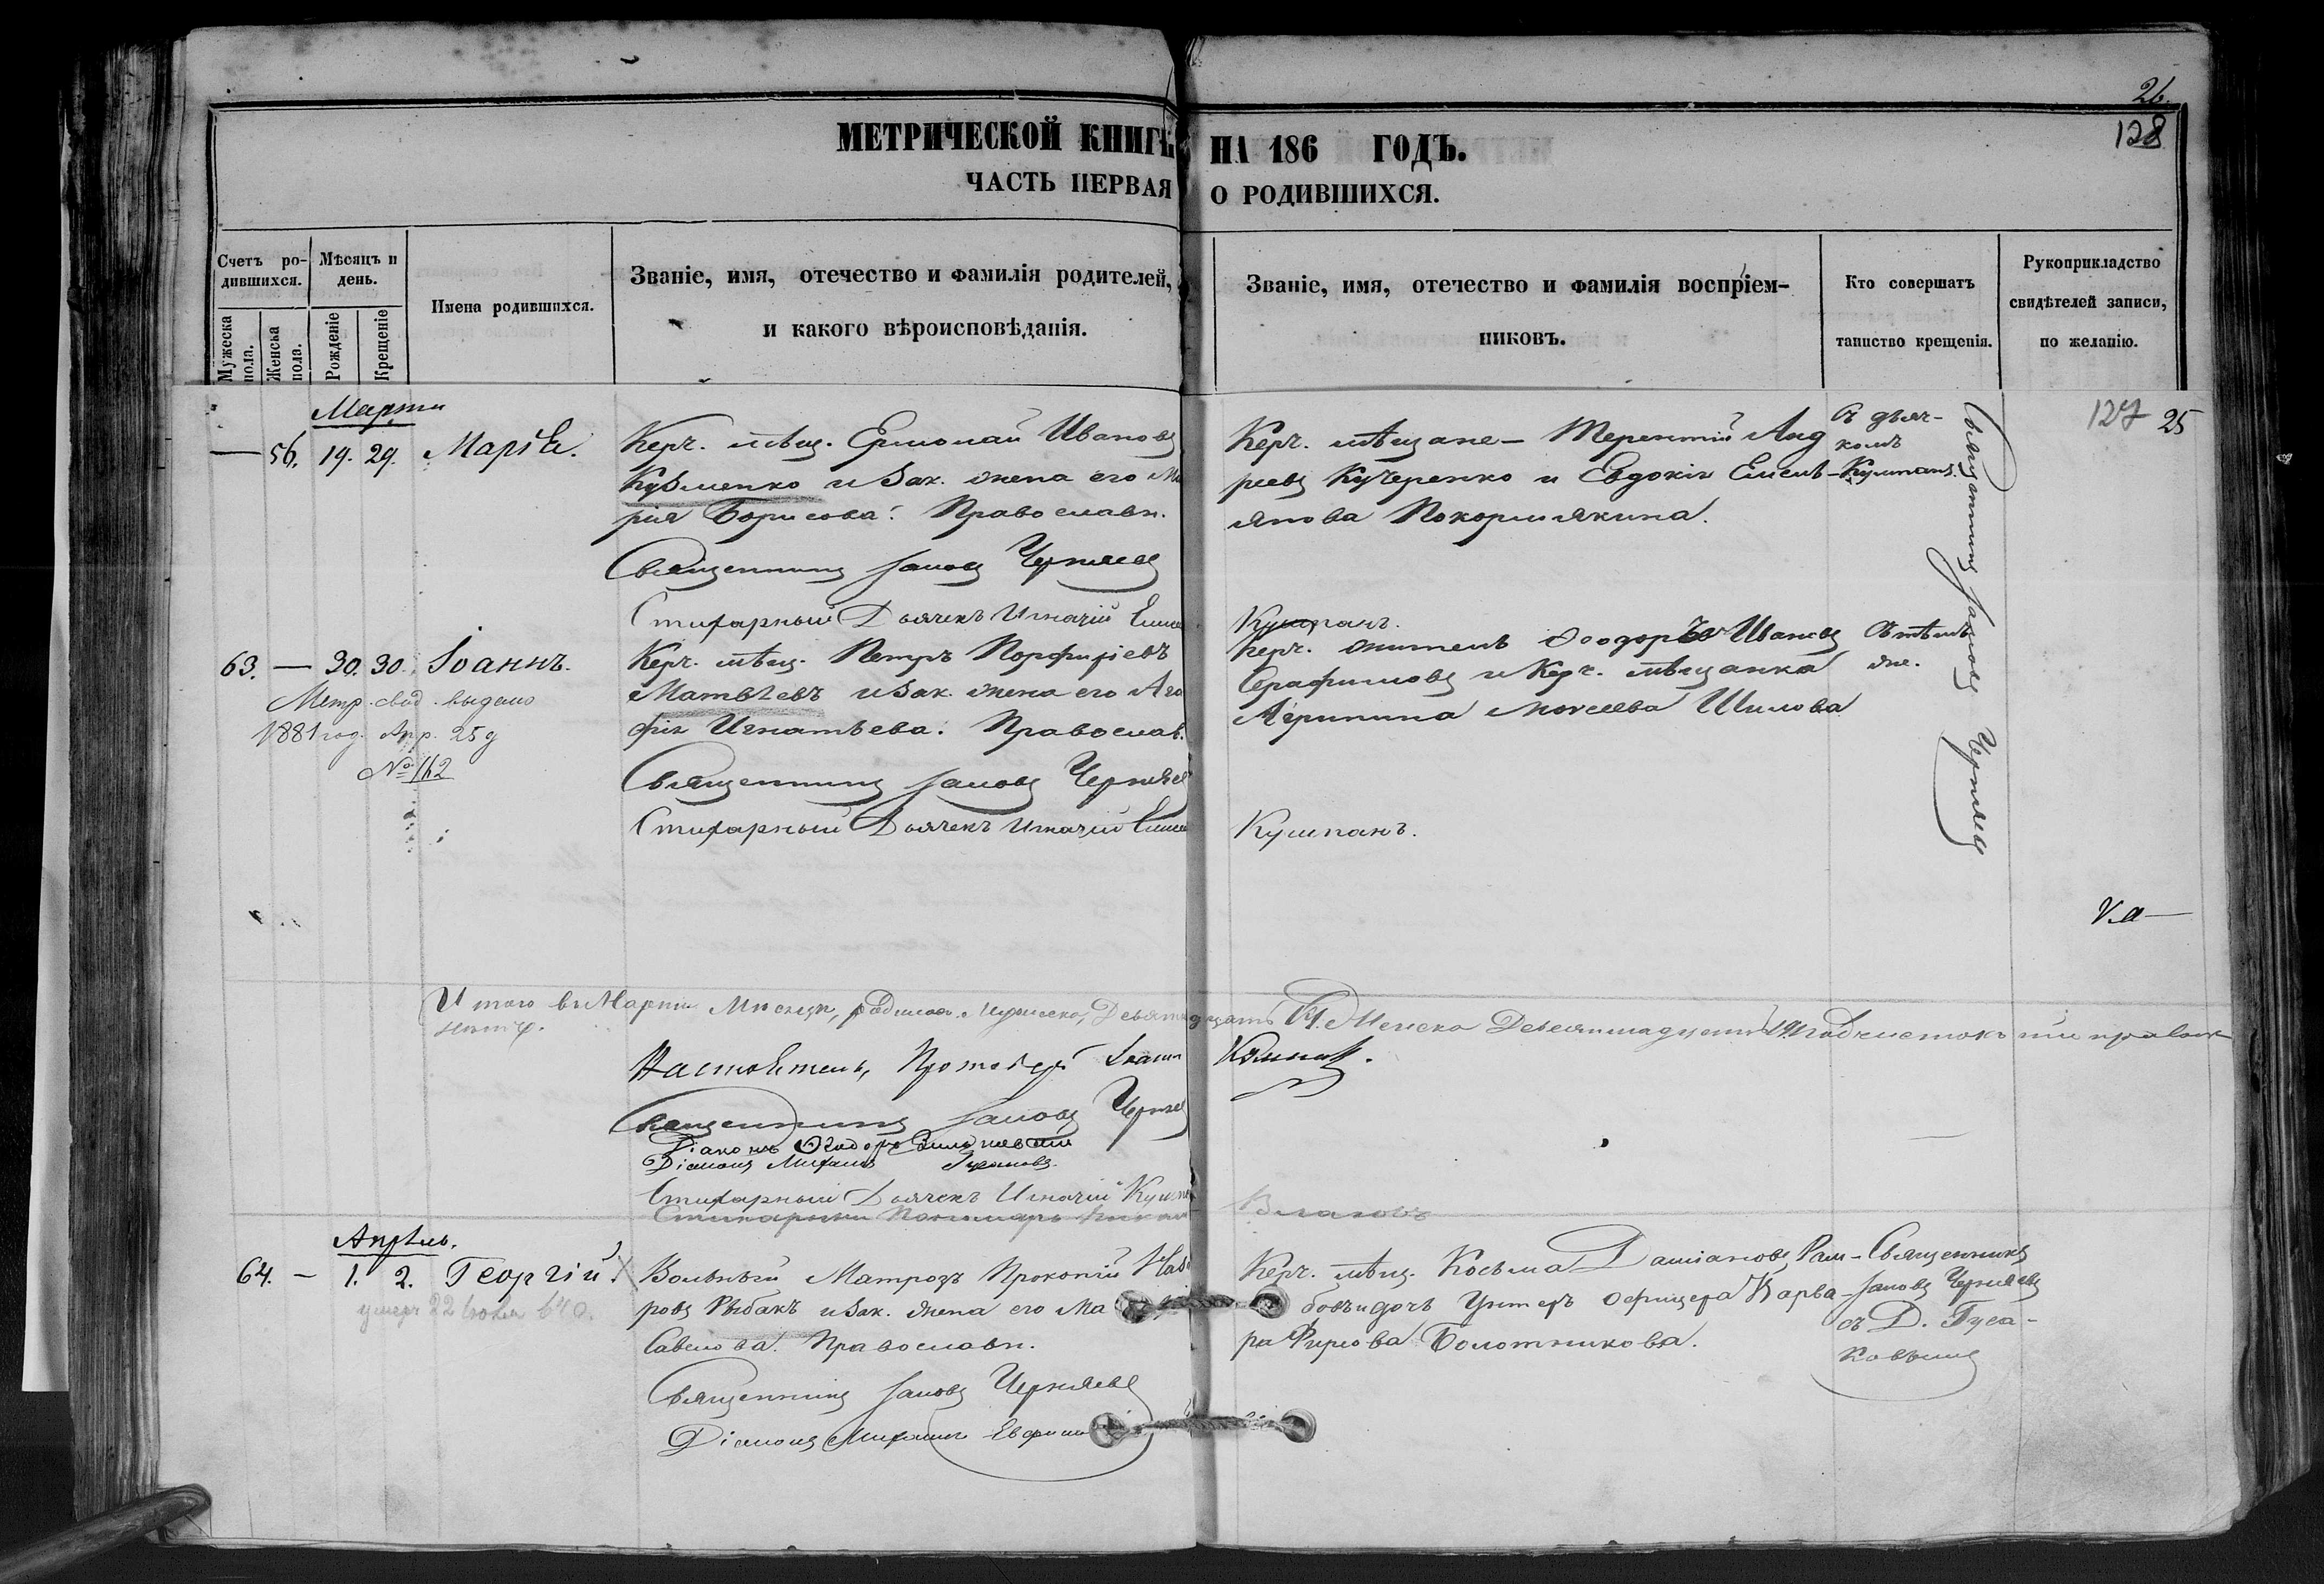 26.
128
МЕТРИЧЕСКОЙ КНИГѢ НА 186 ГОДЪ.
ЧАСТЬ ПЕРВАЯ О РОДИВШИХСЯ.
Счетъ ро-
дившихся.
Мужеска
пола.
Женска
пола.
Мѣсяцъ и
день.
Рожденіе
Крещеніе
Имена родившихся.
Званіе, имя, отечество и фамилія родителей,
и какого вѣроисповѣданія.
Званіе, имя, отечество и фамилія воспріем-
никовъ.
Кто совершатъ
таинство крещенія.
Рукоприкладство
свидѣтелей записи,
по желанію.
127 25
Марта
— 56. 19. 29. Марія.
Керч. мѣщ. Ермолай Ивановъ
Кузменко и зак. жена его Ма
рія Борисова. Православн.
Священникъ Іаковъ Черняевъ
Стихарный Дьячекъ Игнатій
Керч. мѣщане — Терентій Анд
реевъ Кучеренко и Евдокія Емель-
янова Покормякина.
Съ дьяч-
комъ
Кушпанъ.
Священникъ Іаковъ Черняевъ
Кушпанъ.
63. — 30. 30. Іоаннъ.
Метр. свид. выдано
1881 год. Апр. 25 д
№ 162
Керч. мѣщ. Петръ Порфиріевъ
Матвѣевъ и зак. жена его Ага
фія Игнатьева. Православ.
Священникъ Іаковъ Черняев
Стихарный Дьячекъ Игнатій
Керч. житель Ѳеодоръ Ивановъ
Серафимовъ и Керч. мѣщанка
Агрипина Моисеева Шилова
Съ тѣмъ
же.
Кушпанъ.
Итого въ Мартѣ Мѣсяцѣ, родилось Мужеска, Девятнадцать 19. Женска Девятнадцать 19.
Настоятель, Протоіерей Іоанн
Священникъ Іаковъ Черняев
Діаконъ Ѳеодоръ
Діаконъ Михаилъ
Стихарный Дьячекъ Игнатій Кушпа
Стихарный Пономарь
Власовъ
Апрѣль.
64. — 1. 2. Георгій.
умеръ 22 Іюля 64 г.
Вольный Матрозъ Прокопій Наза
ровъ Рыбакъ и зак. жена его Ма
Савелова. Православн.
Священникъ Іаковъ Черняевъ
Діаконъ Михаилъ
Керч. мѣщ. Косьма Даміановъ Рам-
бовъ и дочь Унтеръ Офицера Варва-
ра Фирсова Болотникова.
Священникъ
Іаковъ Черняевъ
съ Д. Гуса-
ковымъ